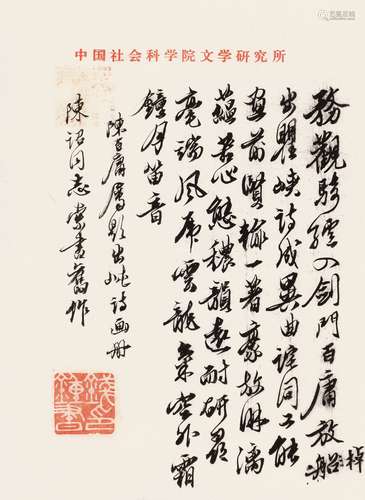 中国社会科学院文学研究所
務觀騎驢入劍門百庸放船棹
出瞿峽詩成異曲詎同工能
畫前賢輸一著豪放淋漓
蘊苦心態穠韻遠耐研尋
毫端風虎雲龍氣空外霜
鐘月笛音
陳百庸屬題出峽詩画册
陳詔同志索書舊作
錢鍾書印